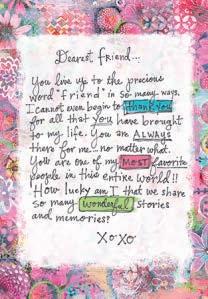 Dearest friend...
You live up to the precious
word "friend" in so many ways.
I cannot even begin to thank you
for all that you have brought
to my life. You are ALWAYS
there for me no matter what.
You are one of my MOST favorite
people in this entire world!!
How lucky am I that we share
so many wonderful stories
and memories?
XoXo